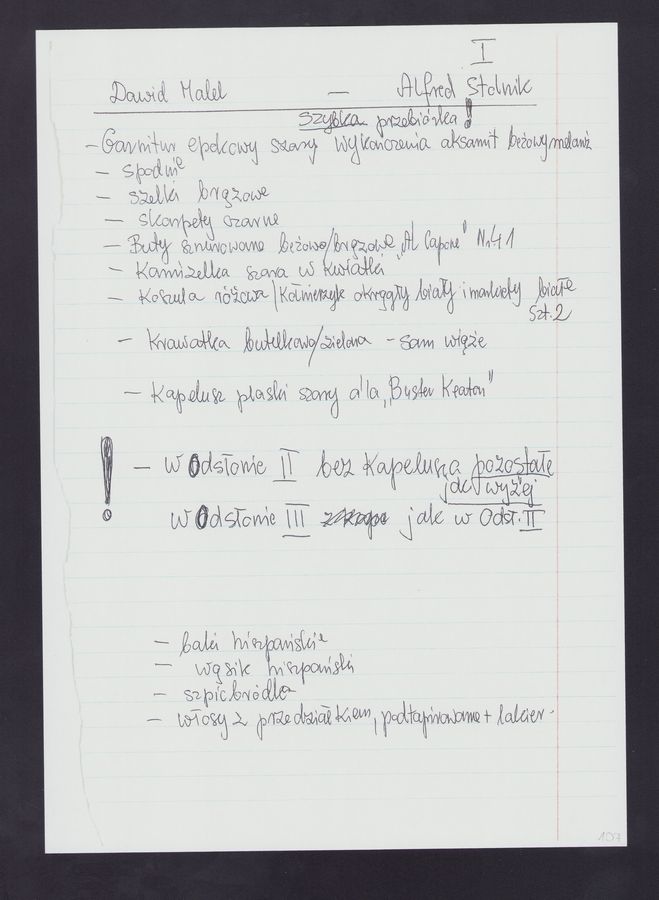 I
Dawid Malel — Alfred Stolnik
szybka przebiórka!
- Garnitur epokowy szary wykończenia aksamit beżowy melanż
- spodnie
- szelki brązowe
- skarpety czarne
- Buty sznurowane beżowo/brązowe "Al Capone" Nr 41
- Kamizelka szara w kwiatki
- Koszula różowa/Kołnierzyk okrągły biały i mankiety białe
szt. 2
- Krawatka butelkowo/zielona - sam wiąże
- Kapelusz płaski szary a'la "Buster Keaton"
! - W Odsłonie II bez Kapelusza pozostałe
jak wyżej
W Odsłonie III jak w Odsł. II
- baki hiszpańskie
- wąsik hiszpański
- szpicbródka
- włosy z przedziałkiem, podtapirowane + lakier.
107